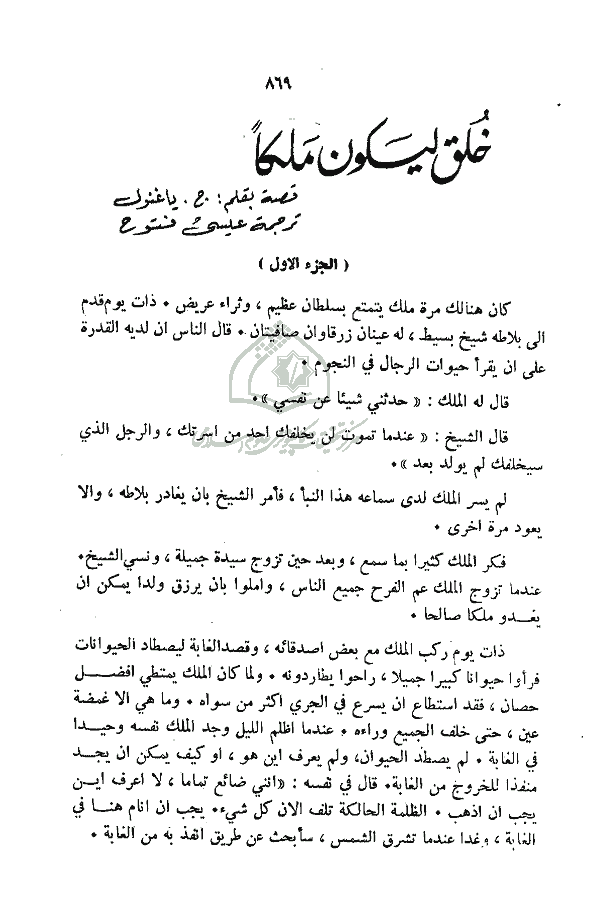 ٨٦٩
خُلق ليكون ملكاً
قصة بقلم: ج. ياغنول
ترجمة عيسى فتوح
( الجزء الاول )
كان هنالك مرة ملك يتمتع بسلطان عظيم ، وثراء عريض ٠ ذات يوم قدم
الى بلاطه شيخ بسيط ، له عينان زرقاوان صافيتان ٠ قال الناس ان لديه القدرة
على ان يقرأ حيوات الرجال في النجوم ٠
قال له الملك : « حدثني شيئا عن نفسي » ٠
قال الشيخ : « عندما تموت لن يخلفك احد من اسرتك ، والرجل الذي
سيخلفك لم يولد بعد » ٠
لم يسر الملك لدى سماعه هذا النبأ ، فأمر الشيخ بان يغادر بلاطه ، والا
يعود مرة اخرى ٠
فكر الملك كثيرا بما سمع ، وبعد حين تزوج سيدة جميلة ، ونسي الشيخ٠
عندما تزوج الملك عم الفرح جميع الناس ، واملوا بان يرزق ولدا يمكن ان
يغدو ملكا صالحا ٠
ذات يوم ركب الملك مع بعض اصدقائه ، وقصد الغابة ليصطاد الحيوانات
فرأوا حيوانا كبيرا جميلا ، راحوا يطاردونه ٠ ولما كان الملك يمتطي افضل
حصان ، فقد استطاع ان يسرع في الجري اكثر من سواه ٠ وما هي الا غمضة
عين ، حتى خلف الجميع وراءه ٠ عندما اظلم الليل وجد الملك نفسه وحيدا
في الغابة ٠ لم يصطد الحيوان، ولم يعرف اين هو ، او كيف يمكن ان يجد
منفذا للخروج من الغابة٠ قال في نفسه : «انني ضائع تماما ، لا اعرف اين
يجب ان اذهب ٠ الظلمة الحالكة تلف الان كل شيء٠ يجب ان انام هنا في
الغابة ، وغدا عندما تشرق الشمس ، سأبحث عن طريق انفذ به من الغابة ٠